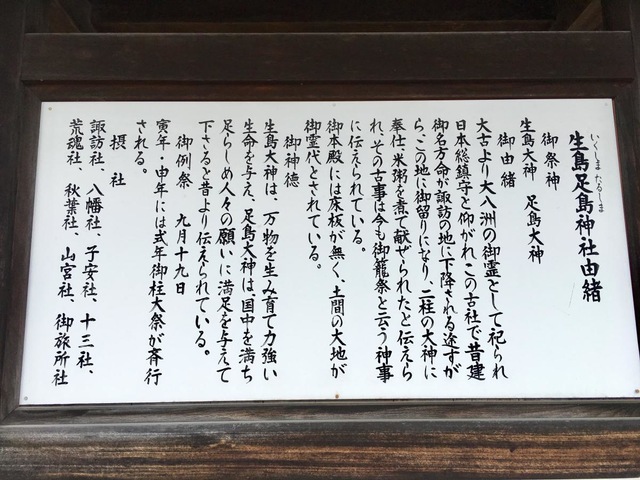 いくしま たるしま
生島足島神社由緒
御祭神
生島大神 足島大神
御由緒
太古より大八洲の御霊として祀られ
日本総鎮守と仰がれ、この古社で昔建
御名方命が諏訪の地に下降される途すが
ら、この地に御留りになり、二柱の大神に
奉仕、米粥を煮て献ぜられたと伝えら
れ、その古事は今も御籠祭と云う神事
に伝えられている。
御本殿には床板が無く、土間の大地が
御霊代とされている。
御神徳
生島大神は、万物を生み育て力強い
生命を与え、足島大神は国中を満ち
足らしめ人々の願いに満足を与えて
下さると昔より伝えられている。
御例祭 九月十九日
寅年・申年には式年御柱大祭が斉行
される。
摂社
諏訪社、八幡社、子安社、十三社、
荒魂社、秋葉社、山宮社、御旅所社